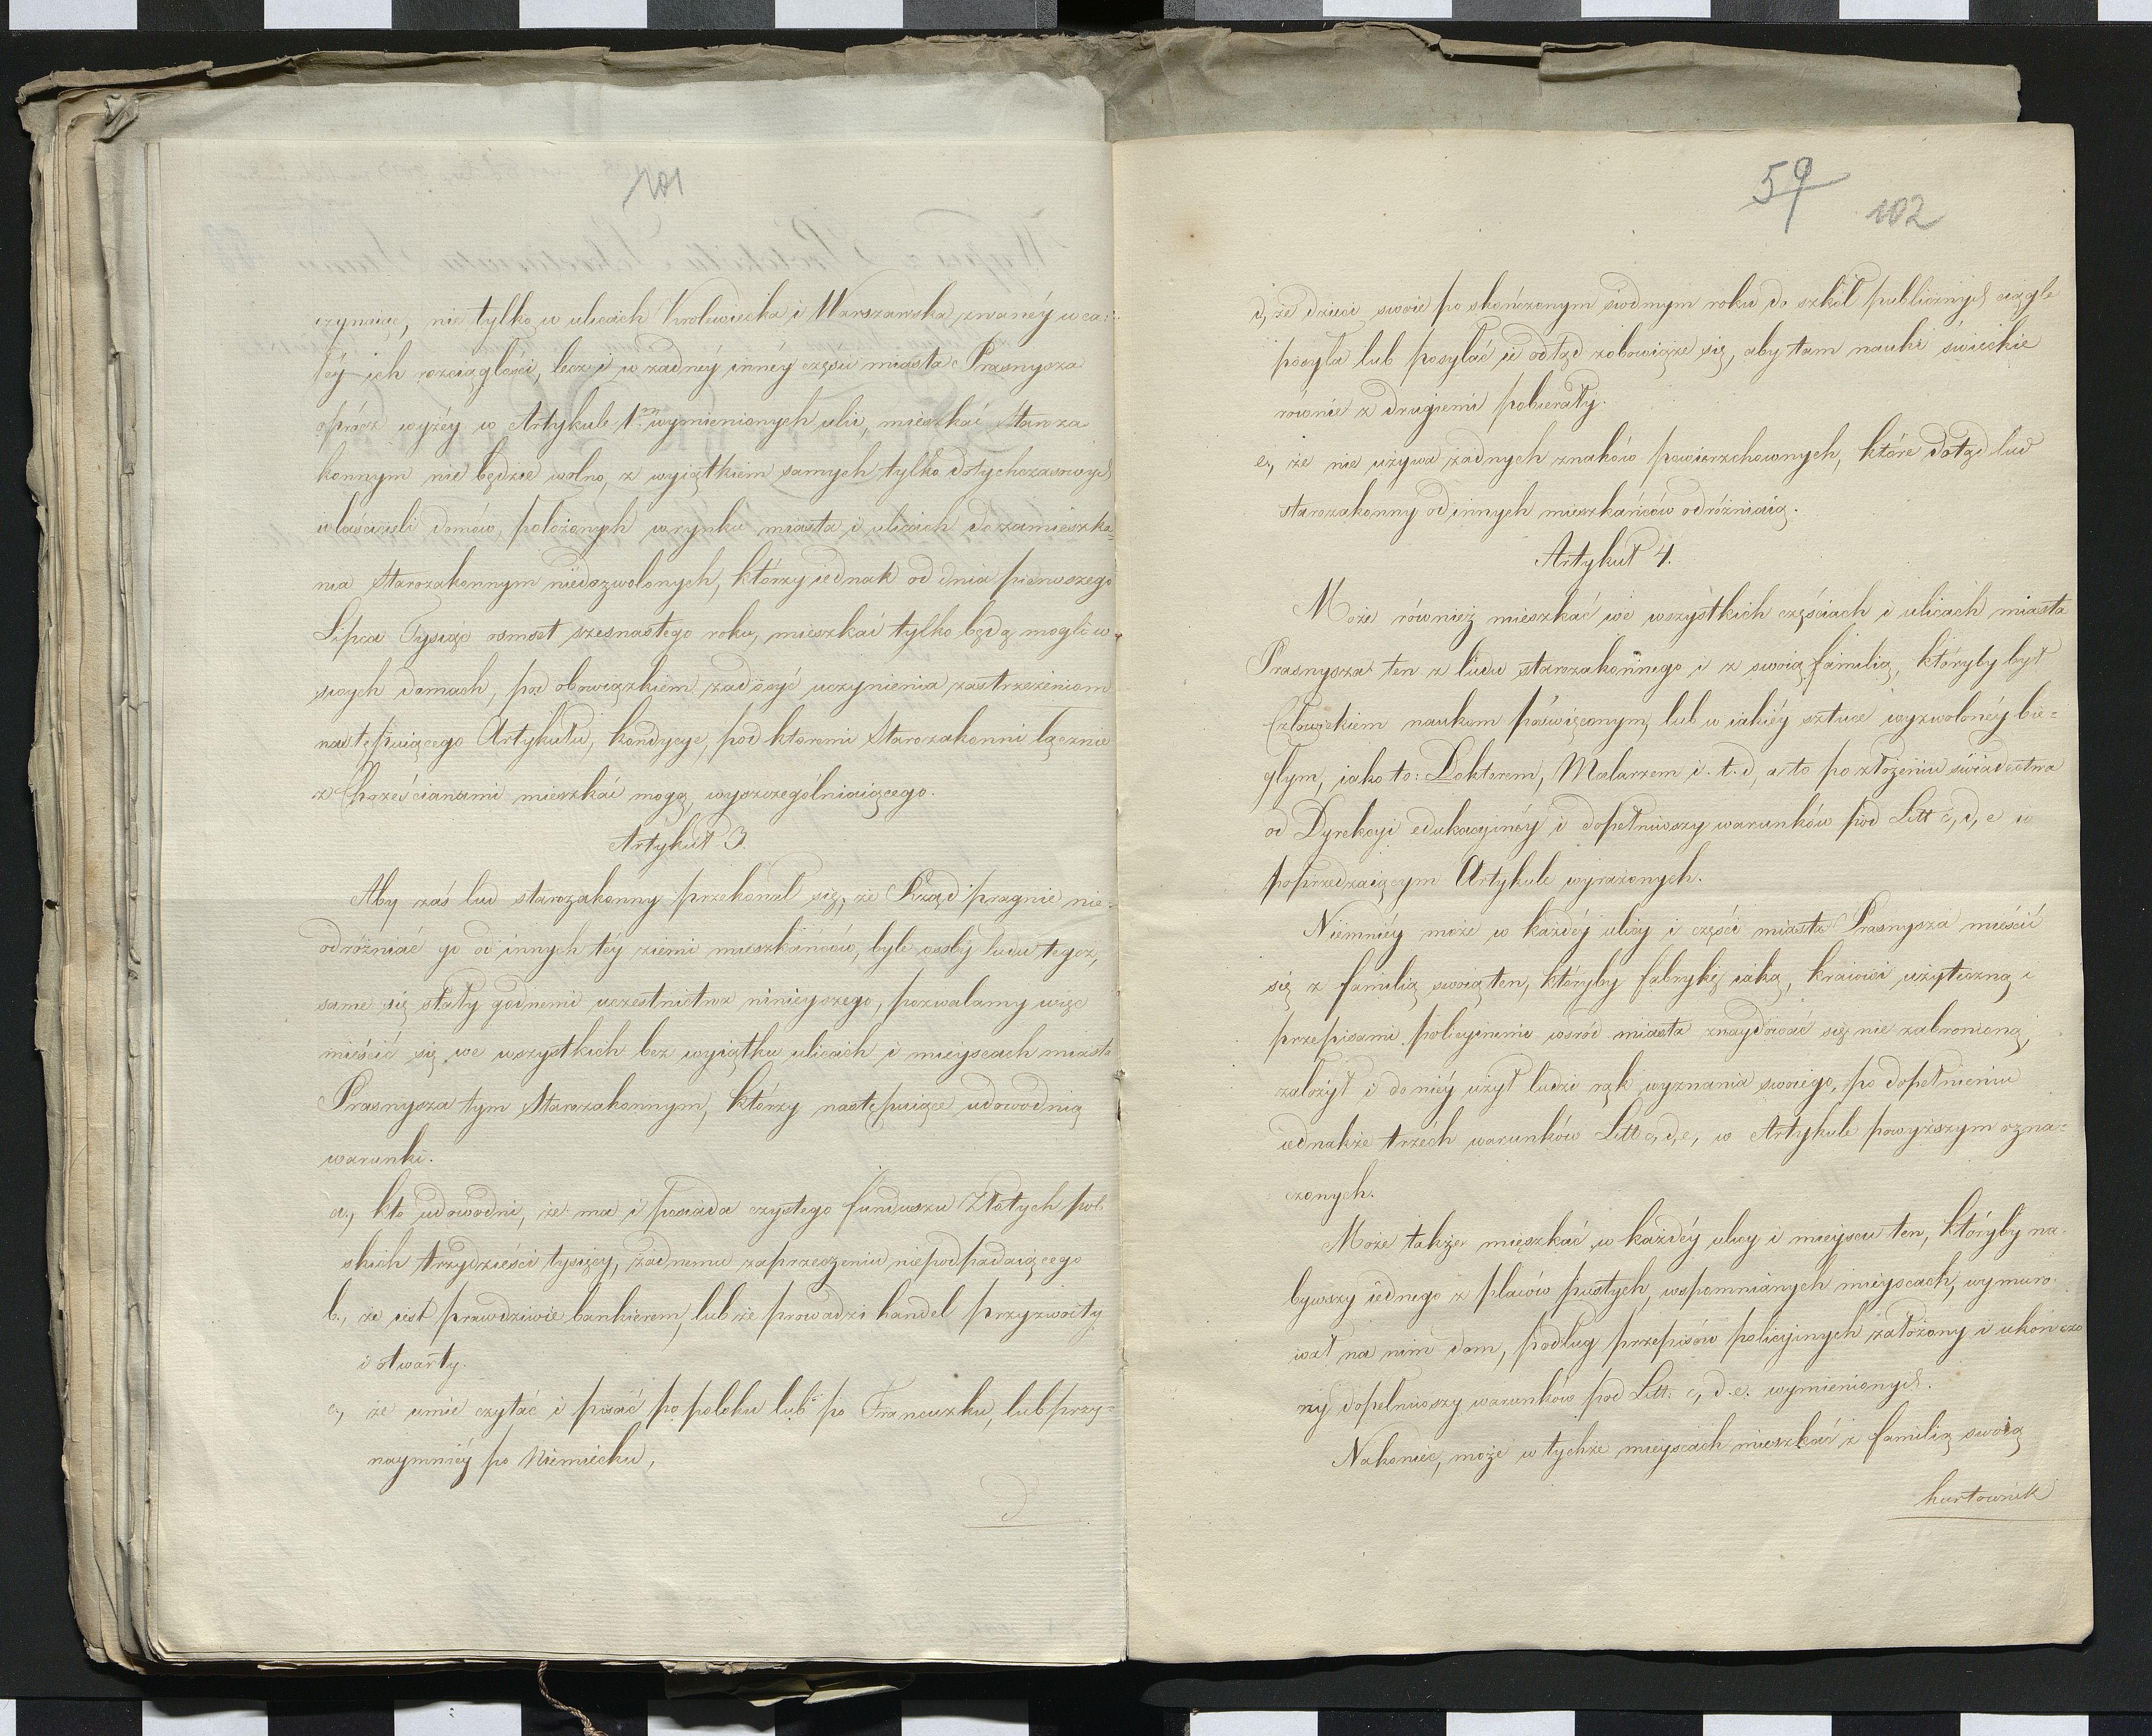 101
czynaiąc, nie tylko w ulicach Krolewiecka i Warszawska zwanéy w ca-
łéy ich rozciągłości, lecz i w żadnéy innéy części miasta Prasnysza
oprócz wyżéy w Artykule 1ym wymienionych ulic, mieszkać Staroza
konnym nie będzie wolno, z wyiątkiem samych tylko dotychczasowych
właścicieli domów, położonych w rynku miasta i ulicach do zamieszka-
nia Starozakonnym niedozwolonych, którzy iednak od dnia pierwszego
Lipca Tysiąc osmset szesnastego roku, mieszkać tylko będą mogli w
swych domach, pod obowiązkiem zadosyć uczynienia zastrzeżeniom
następuiącego Artykułu, kondycye, pod ktoremi Starozakonni łącznie
z Chrześcianami mieszkać mogą, wyszczególniaiącego.
Artykuł 3.
Aby zaś lud starozakonny przekonał się, że Rząd pragnie nie-
odróżniać go od innych téy ziemi mieszkańców, byle osoby ludu tegoż,
same się stały godnemi uczestnictwa ninieyszego, pozwalamy więc
mieścić się we wszystkich bez wyiątku ulicach i mieyscach miasta
Prasnysza tym Starozakonnym, którzy następuiące udowodnią
warunki.
a., kto udowodni, że ma i posiada czystego funduszu Złotych pol-
skich trzydzieści tysięcy, żadnemu zaprzeczeniu niepodpadaiącego
b., że iest prawdziwie bankierem, lub że prowadzi handel przyzwoity
i otwarty.
c., że umie czytać i pisać po polsku lub po Francuzku, lub przy-
naymniéy po Niemiecku,
d
59
102
d, że dzieci swoie po skończonym siodmym roku do szkół publicznych ciągle
posyła lub posyłać ie odtąd zobowiąże się, aby tam nauki świeckie
równie z drugiemi pobierały.
e., że nie używa żadnych znaków powierzchownych, które dotąd lud
starozakonny od innych mieszkańców odróżniaią.
Artykuł 4.
Może również mieszkać we wszystkich częściach i ulicach miasta
Prasnysza ten z ludu starozakonnego i z swoią familią, któryby był
Człowiekiem naukom poświęconym, lub w iakiéy sztuce wyzwolonéy bie-
głym, iako to: Doktorem, Malarzem i. t. d, a to po złożeniu świadectwa
od Dyrekcyi edukacyinéy i dopełniwszy warunków pod Litt c, d, e w
poprzedzaiącym Artykule wyrażonych.
Niemniéy może w każdéy ulicy i części miasta Prasnysza mieścić
się z familią swoią ten, któryby fabrykę iaką, kraiowi użyteczną i
przepisami policyinemi wsród miasta znaydować się nie zabronioną,
założył i do niéy użył ludzi rąk wyznania swoiego, po dopełnieniu
iednakże trzech warunków Litt c, d, e, w Artykule powyższym ozna-
czonych.
Może także mieszkać w każdéy ulicy i mieyscu ten, któryby na-
bywszy iednego z placów pustych, wspomnianych mieyscach, wymuro-
wał na nim dom, podług przepisów policyinych założony i ukończo
ny dopełniwszy warunków pod Litt. c, d. e. wymienionych.
Nakoniec, może w tychże mieyscach mieszkać z familią swoią
hurtownik